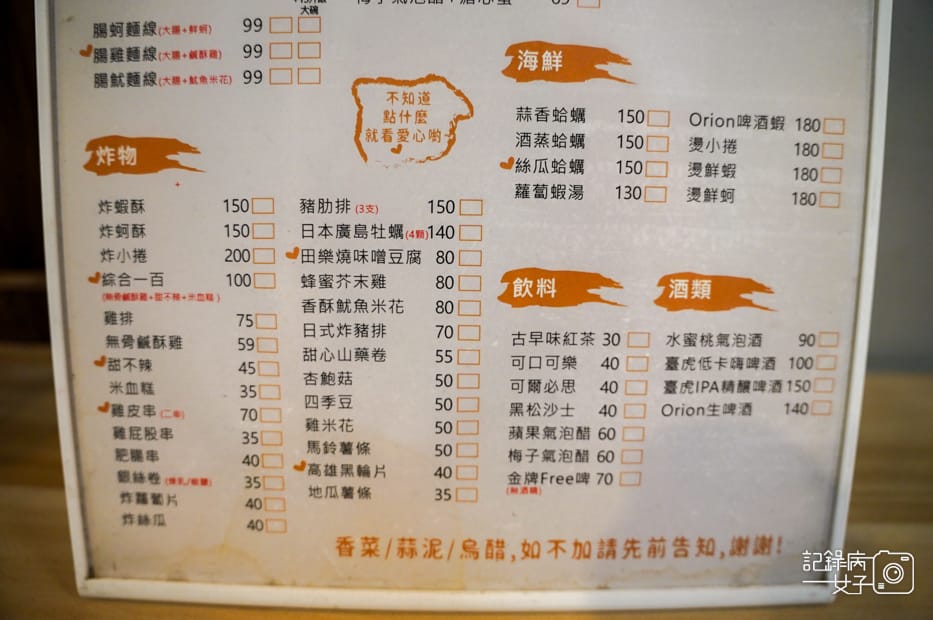 大碗
腸蚵麵線(大腸+鮮蚵) 99
腸雞麵線(大腸+鹹酥雞) 99
腸魷麵線(大腸+魷魚米花) 99
不知道
點什麼
就看愛心喲~
炸物
炸蝦酥 150
炸蚵酥 150
炸小捲 200
綜合一百 100
(無骨鹹酥雞+甜不辣+米血糕)
雞排 75
無骨鹹酥雞 59
甜不辣 45
米血糕 35
雞皮串(二串) 70
雞屁股串 35
肥腸串 40
銀絲卷(煉乳/椒鹽) 35
炸蘿蔔片 40
炸絲瓜 40
豬肋排(3支) 150
日本廣島牡蠣(4顆) 140
田樂燒味噌豆腐 80
蜂蜜芥末雞 80
香酥魷魚米花 80
日式炸豬排 70
甜心山藥卷 55
杏鮑菇 50
四季豆 50
雞米花 50
馬鈴薯條 50
高雄黑輪片 40
地瓜薯條 35
海鮮
蒜香蛤蠣 150
酒蒸蛤蠣 150
絲瓜蛤蠣 150
蘿蔔蝦湯 130
Orion啤酒蝦 180
燙小捲 180
燙鮮蝦 180
燙鮮蚵 180
飲料
古早味紅茶 30
可口可樂 40
可爾必思 40
黑松沙士 40
蘋果氣泡醋 60
梅子氣泡醋 60
金牌Free啤 70
(無酒精)
酒類
水蜜桃氣泡酒 90
臺虎低卡嗨啤酒 100
臺虎IPA精釀啤酒 150
Orion生啤酒 140
香菜/蒜泥/烏醋,如不加請先前告知,謝謝!
記錄病
女子